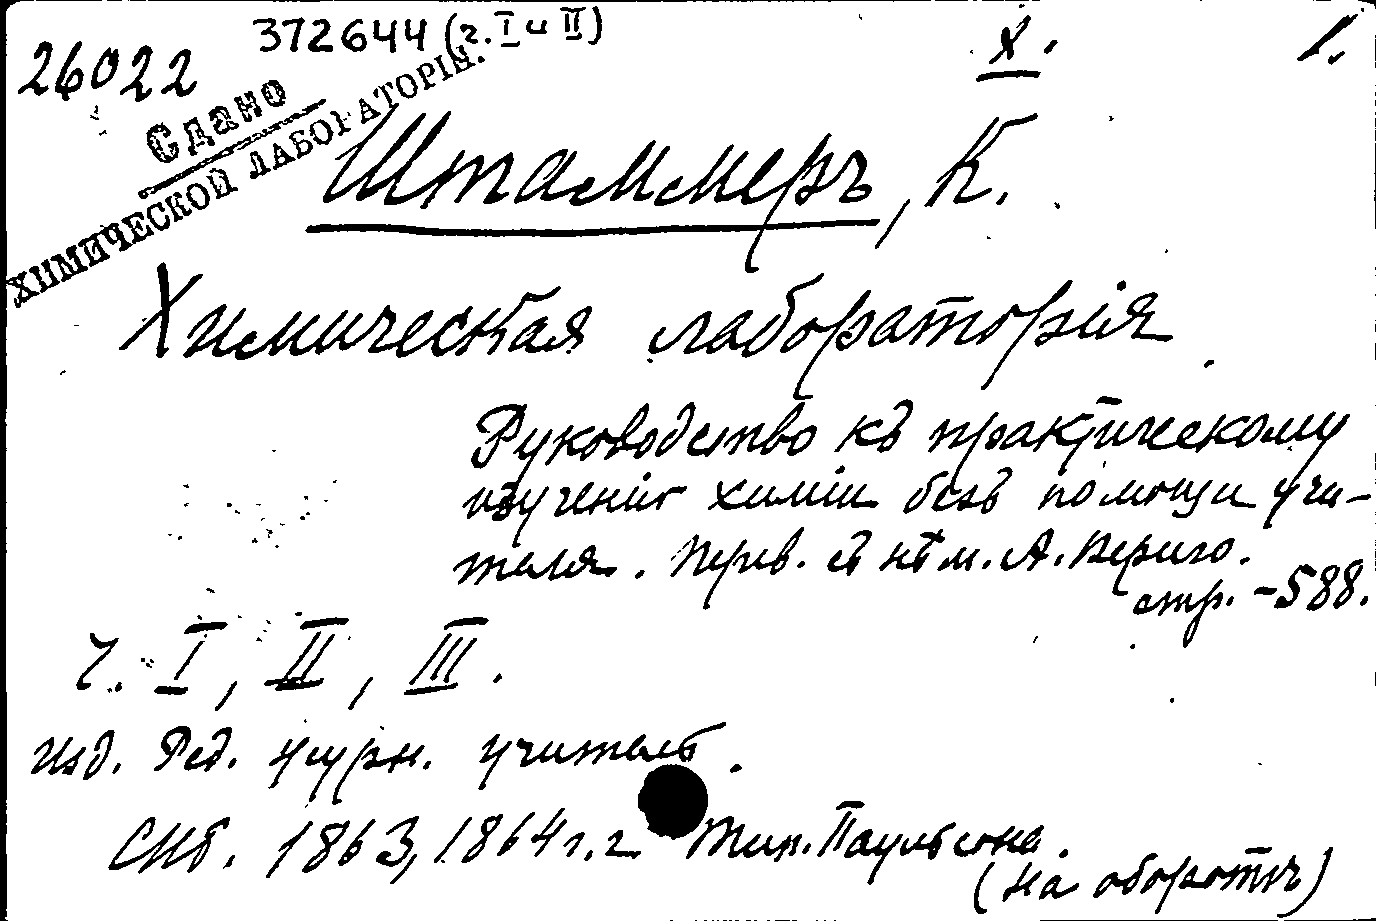 26022 372644 (ч. I и II) X. 1.
Сдано
ХИМИЧЕСКОЙ ЛАБОРАТОРІИ.
Штаммеръ, К.
Химическая лабораторія
Руководство къ практическому
изученію химіи безъ помощи учи-
теля. Перев. съ нѣм. А. Вериго.
стр. - 588.
Ч. I, II, III.
Изд. Ред. журн. учитель.
СПб. 1863, 1864 г.г. Тип. Паульсона.
(на оборотѣ)